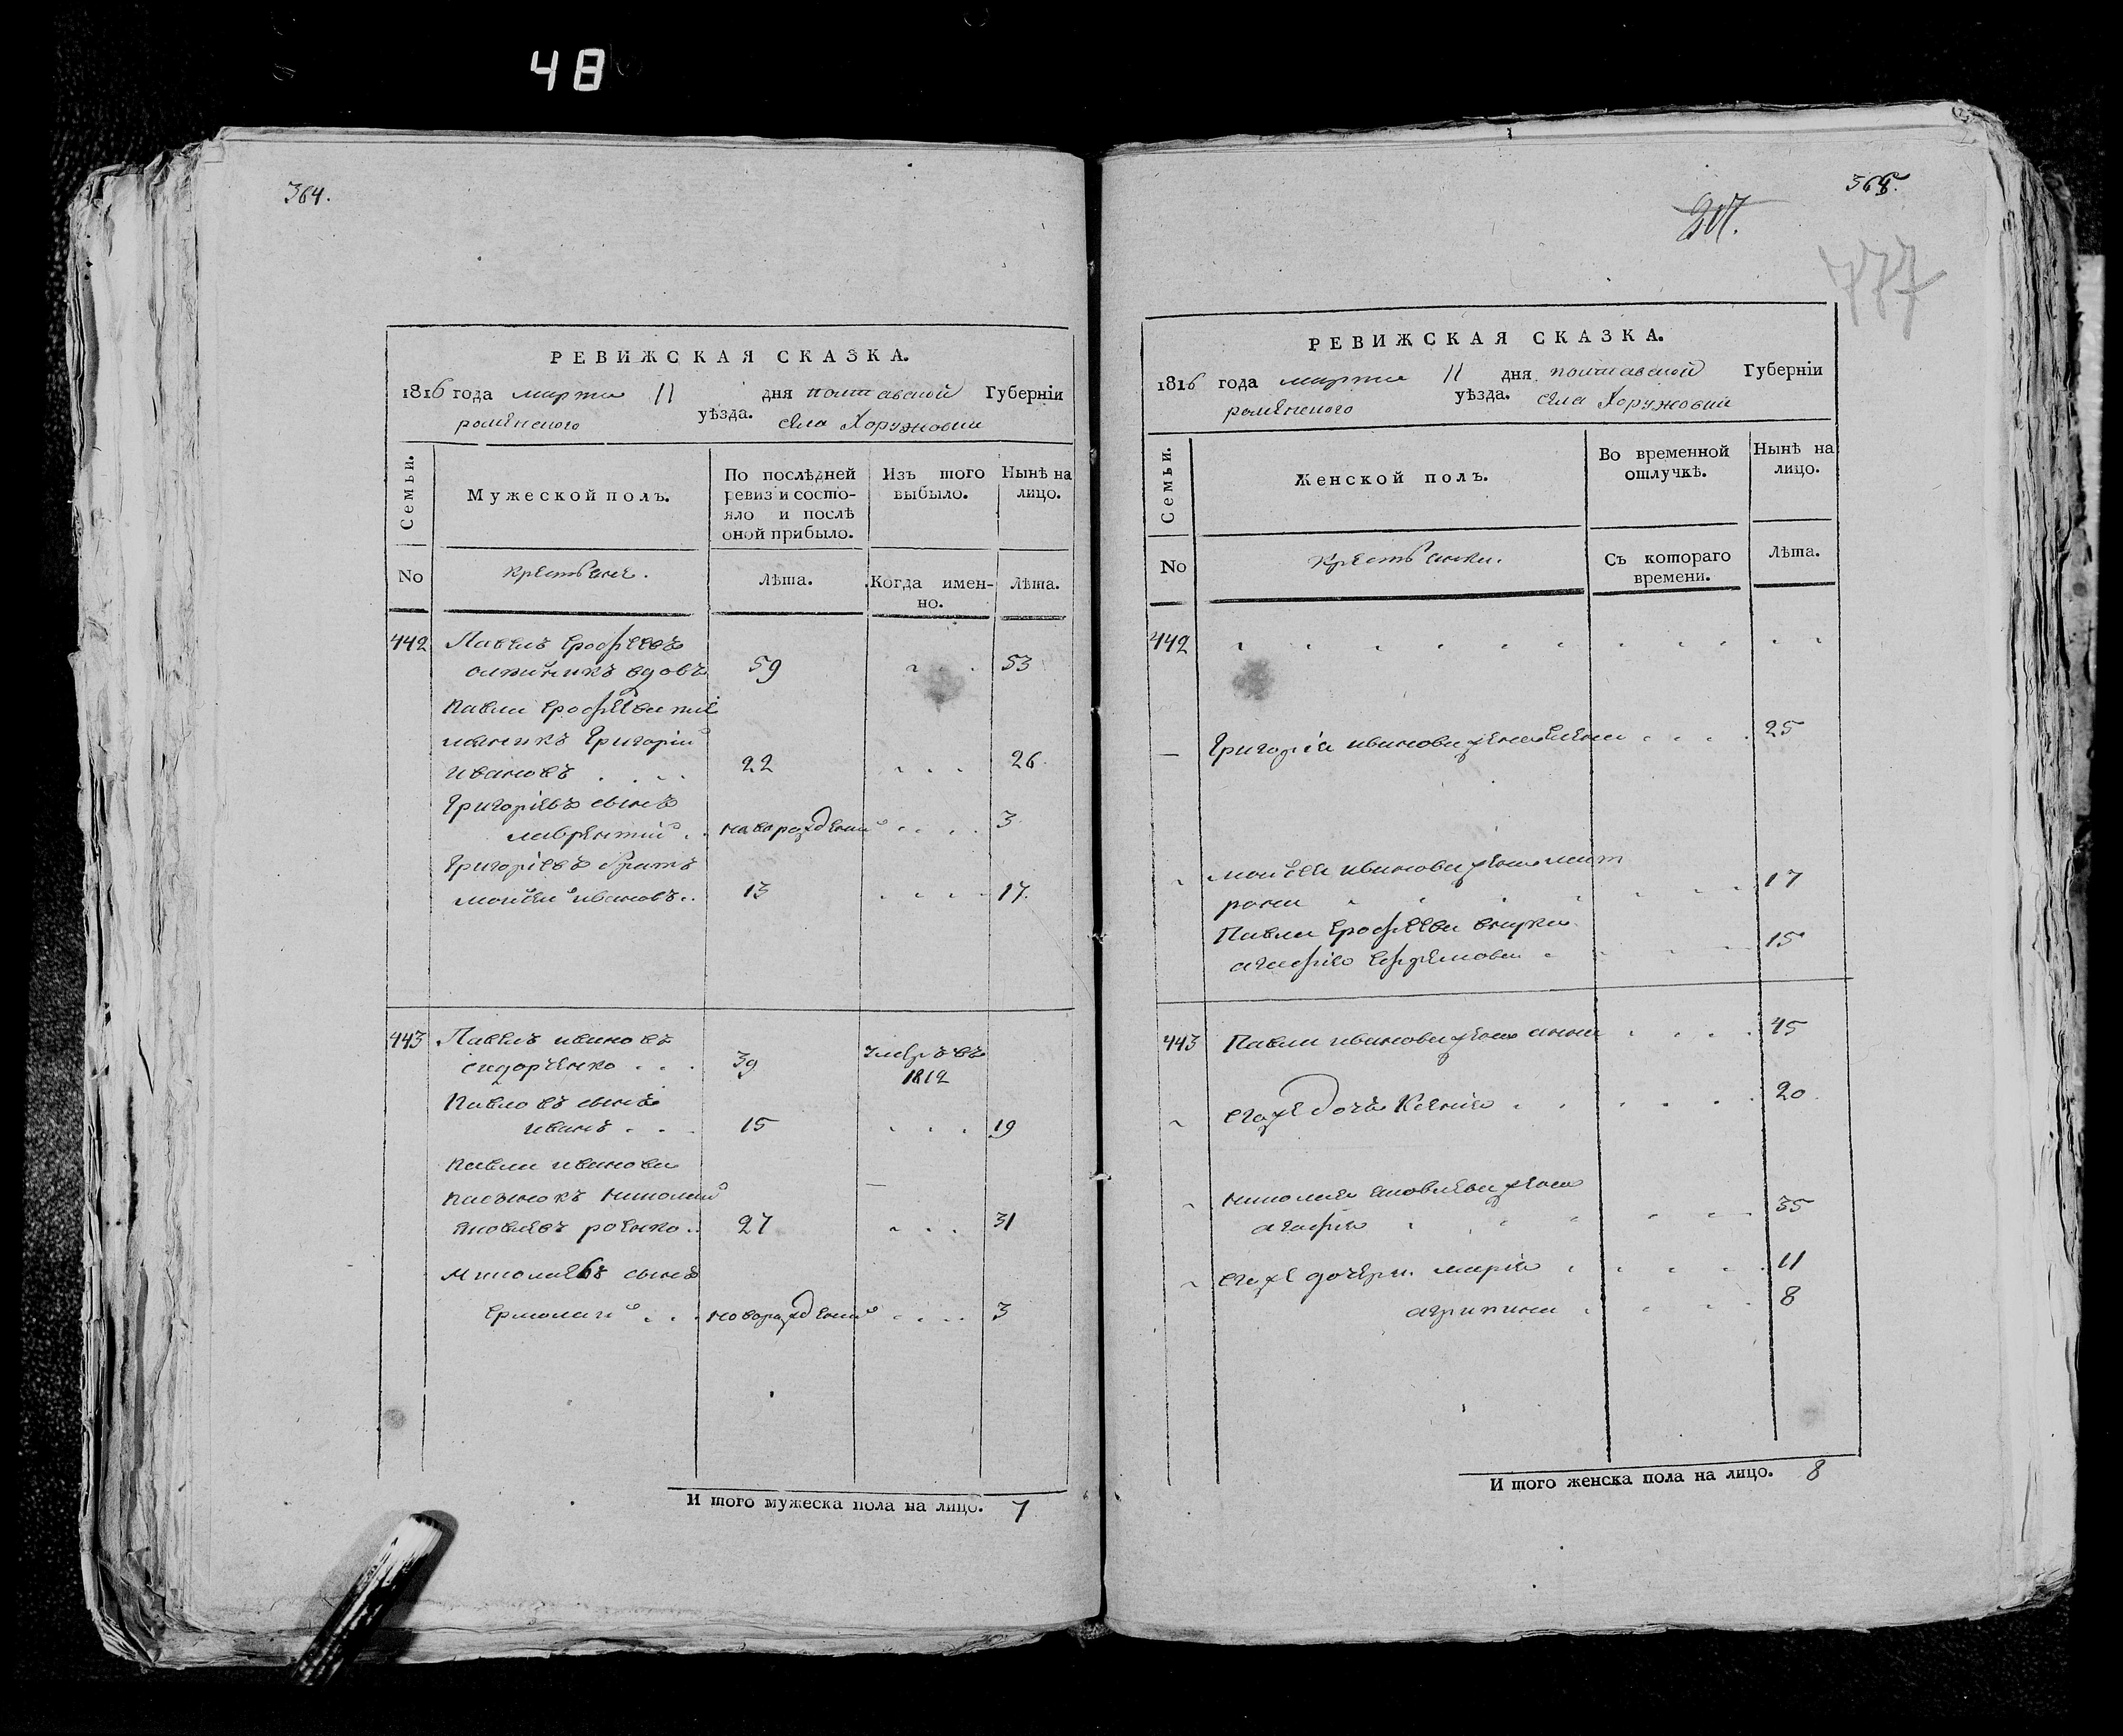 48
364.
РЕВИЖСКАЯ СКАЗКА.
1816 года марта 11 дня полтавской Губерніи
роменского уѣзда. села Хоружовки
Семьи.
Мужеской полъ.
По послѣдней ревизіи состояло и послѣ оной прибыло.
Изъ того выбыло.
Нынѣ на лицо.
No
крестьяне.
Лѣта.
Когда именно.
Лѣта.
442 Павелъ Ерофѣевъ
вдовъ 59 53
Павла Ерофѣева
Григорій
Ивановъ 22 26
Григоріевъ сынъ
лаврентій новорожденый 3
Григоріевъ братъ
мойсей ивановъ 13 17.
443 Павелъ ивановъ
сидоренко 39 умеръ въ 1812
Павловъ сынъ
иванъ 15 19
Павла иванова
пасынокъ николай
яковлевъ роенко 27 31
Николаевъ сынъ
Ермолай новорожденый 3
И того мужеска пола на лицо. 7
365.
217.
777
РЕВИЖСКАЯ СКАЗКА.
1816 года марта 11 дня полтавской Губерніи
роменского уѣзда. села Хоружовки
Семьи.
Женской полъ.
Во временной отлучкѣ.
Нынѣ на лицо.
No
крестьянки.
Съ котораго времени.
Лѣта.
442
Григорія иванова жена елена 25
мойсея иванова жена мат
рона 17
Павла Ерофѣева внучка
агафія Ефремова 15
443 Павла иванова жена анна 45
егоже дочь Ксенія 20
николая яковлева жена
агафія 35
егоже дочери. марія 11
агрипина 8
И того женска пола на лицо. 8